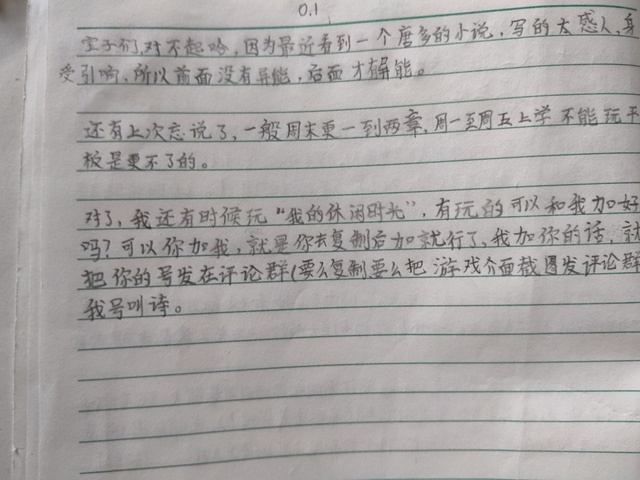 0.1
宝子们,对不起哈,因为最近看到一个唐多的小说,写的太感人,身
受引响,所以前面没有异能,后面才有异能。
还有上次忘说了,一般周末更一到两章,周一至周五上学不能玩平
板是更不了的。
对了,我还有时候玩“我的休闲时光”,有玩的可以和我加好
吗?可以你加我,就是你去复制后加就行了,我加你的话,就
把你的号发在评论群(要么复制要么把游戏介面截图发评论群
我号叫诗。